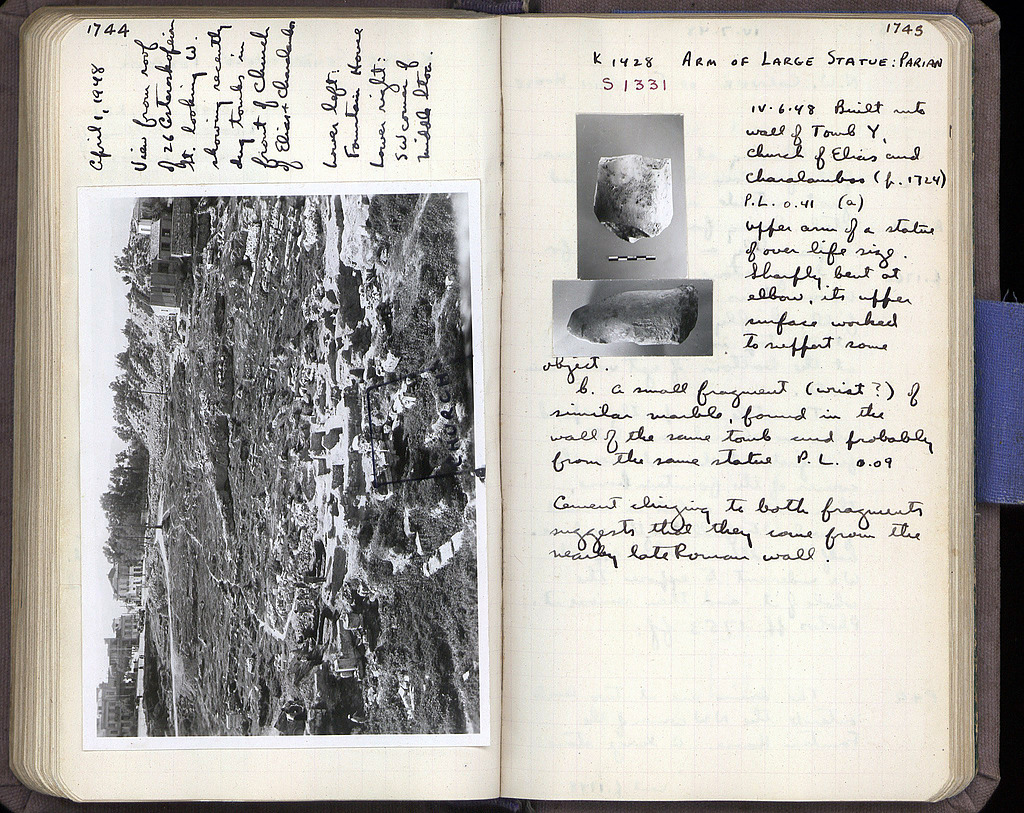 1744
April 1, 1948
View from roof
of 26 Asteroskopeiou
St. looking W.
showing recently
dug tombs in
front of Church
of Elias + Charalambos
Lower left:
Fountain House
Lower right:
SW corner of
Middle Stoa.
CHURCH
1745
K 1428 ARM OF LARGE STATUE: PARIAN
S 1331
IV.6.48 Built into
wall of Tomb Y,
church of Elias and
Charalambos (p. 1724)
P.L. 0.41 (a)
upper arm of a statue
of over life size.
Sharply bent at
elbow, its upper
surface worked
to support some
object.
b. a small fragment (wrist?) of
similar marble, found in the
wall of the same tomb and probably
from the same statue P.L. 0.09
Cement clinging to both fragments
suggests that they come from the
nearby late Roman wall.